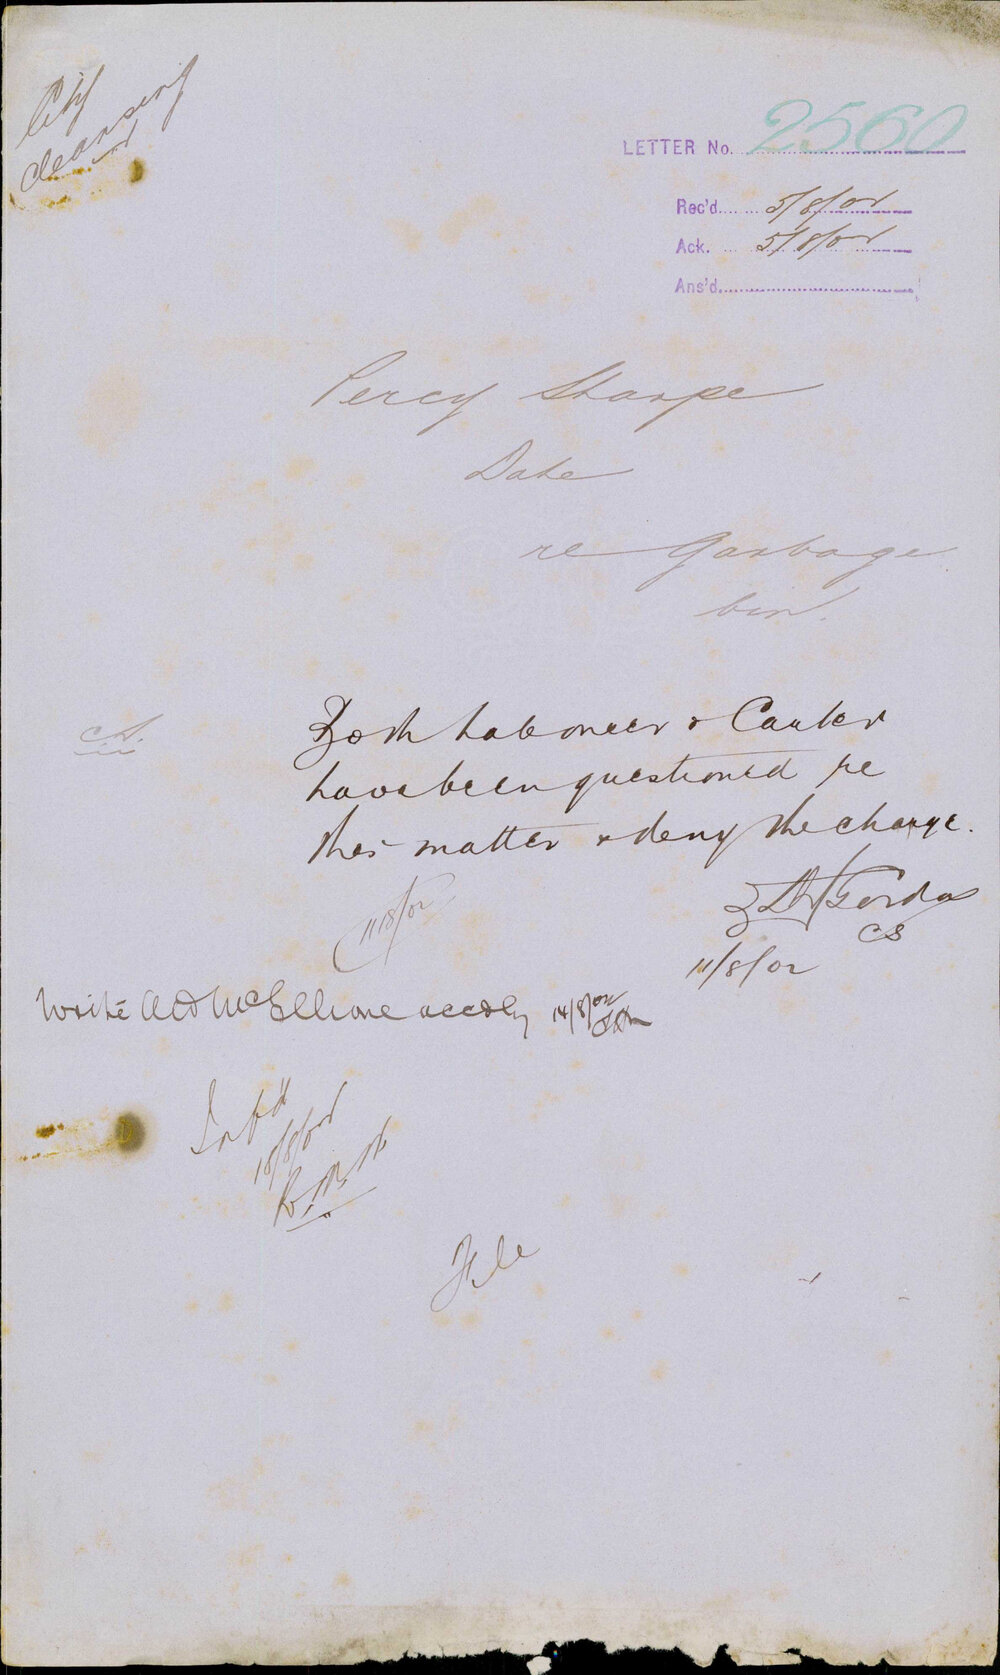 City
cleansing
LETTER No. 2560
Rec'd 5/8/02
Ack. 5/8/02
Ans'd
Percy Sharpe
Date
re Garbage
bin.
Both labourer & Carter
have been questioned re
this matter & deny the charge.
Gordon
CS
11/8/02
11/8/02
Write accdly 14/8/02
Inf'd
18/8/02
File